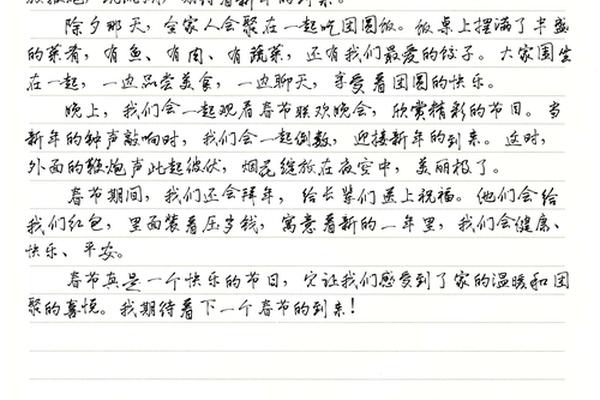 除夕那天，全家人会聚在一起吃团圆饭。饭桌上摆满了丰盛
的菜肴，有鱼、有肉、有蔬菜，还有我们最爱的饺子。大家围坐
在一起，一边品尝美食，一边聊天，享受着团圆的快乐。
晚上，我们会一起观看春节联欢晚会，欣赏精彩的节目。当
新年的钟声敲响时，我们会一起倒数，迎接新年的到来。这时，
外面的鞭炮声此起彼伏，烟花绽放在夜空中，美丽极了。
春节期间，我们还会拜年，给长辈们送上祝福。他们会给
我们红包，里面装着压岁钱，寓意着新的一年里，我们会健康、
快乐、平安。
春节真是一个快乐的节日，它让我们感受到了家的温暖和团
聚的喜悦。我期待着下一个春节的到来！